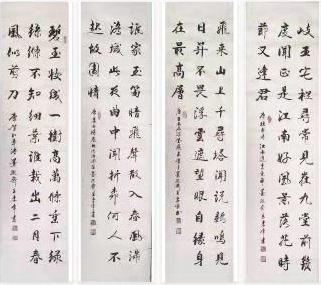 岐王宅裡尋常見崔九堂前幾
度聞正是江南好風景落花時
節又逢君
飛來山上千尋塔聞說雞鳴見
日昇不畏浮雲遮望眼自緣身
在最高層
誰家玉笛暗飛聲散入春風滿
洛城此夜曲中聞折柳何人不
起故園情
碧玉妝成一樹高萬條垂下綠
絲絛不知細葉誰裁出二月春
風似剪刀